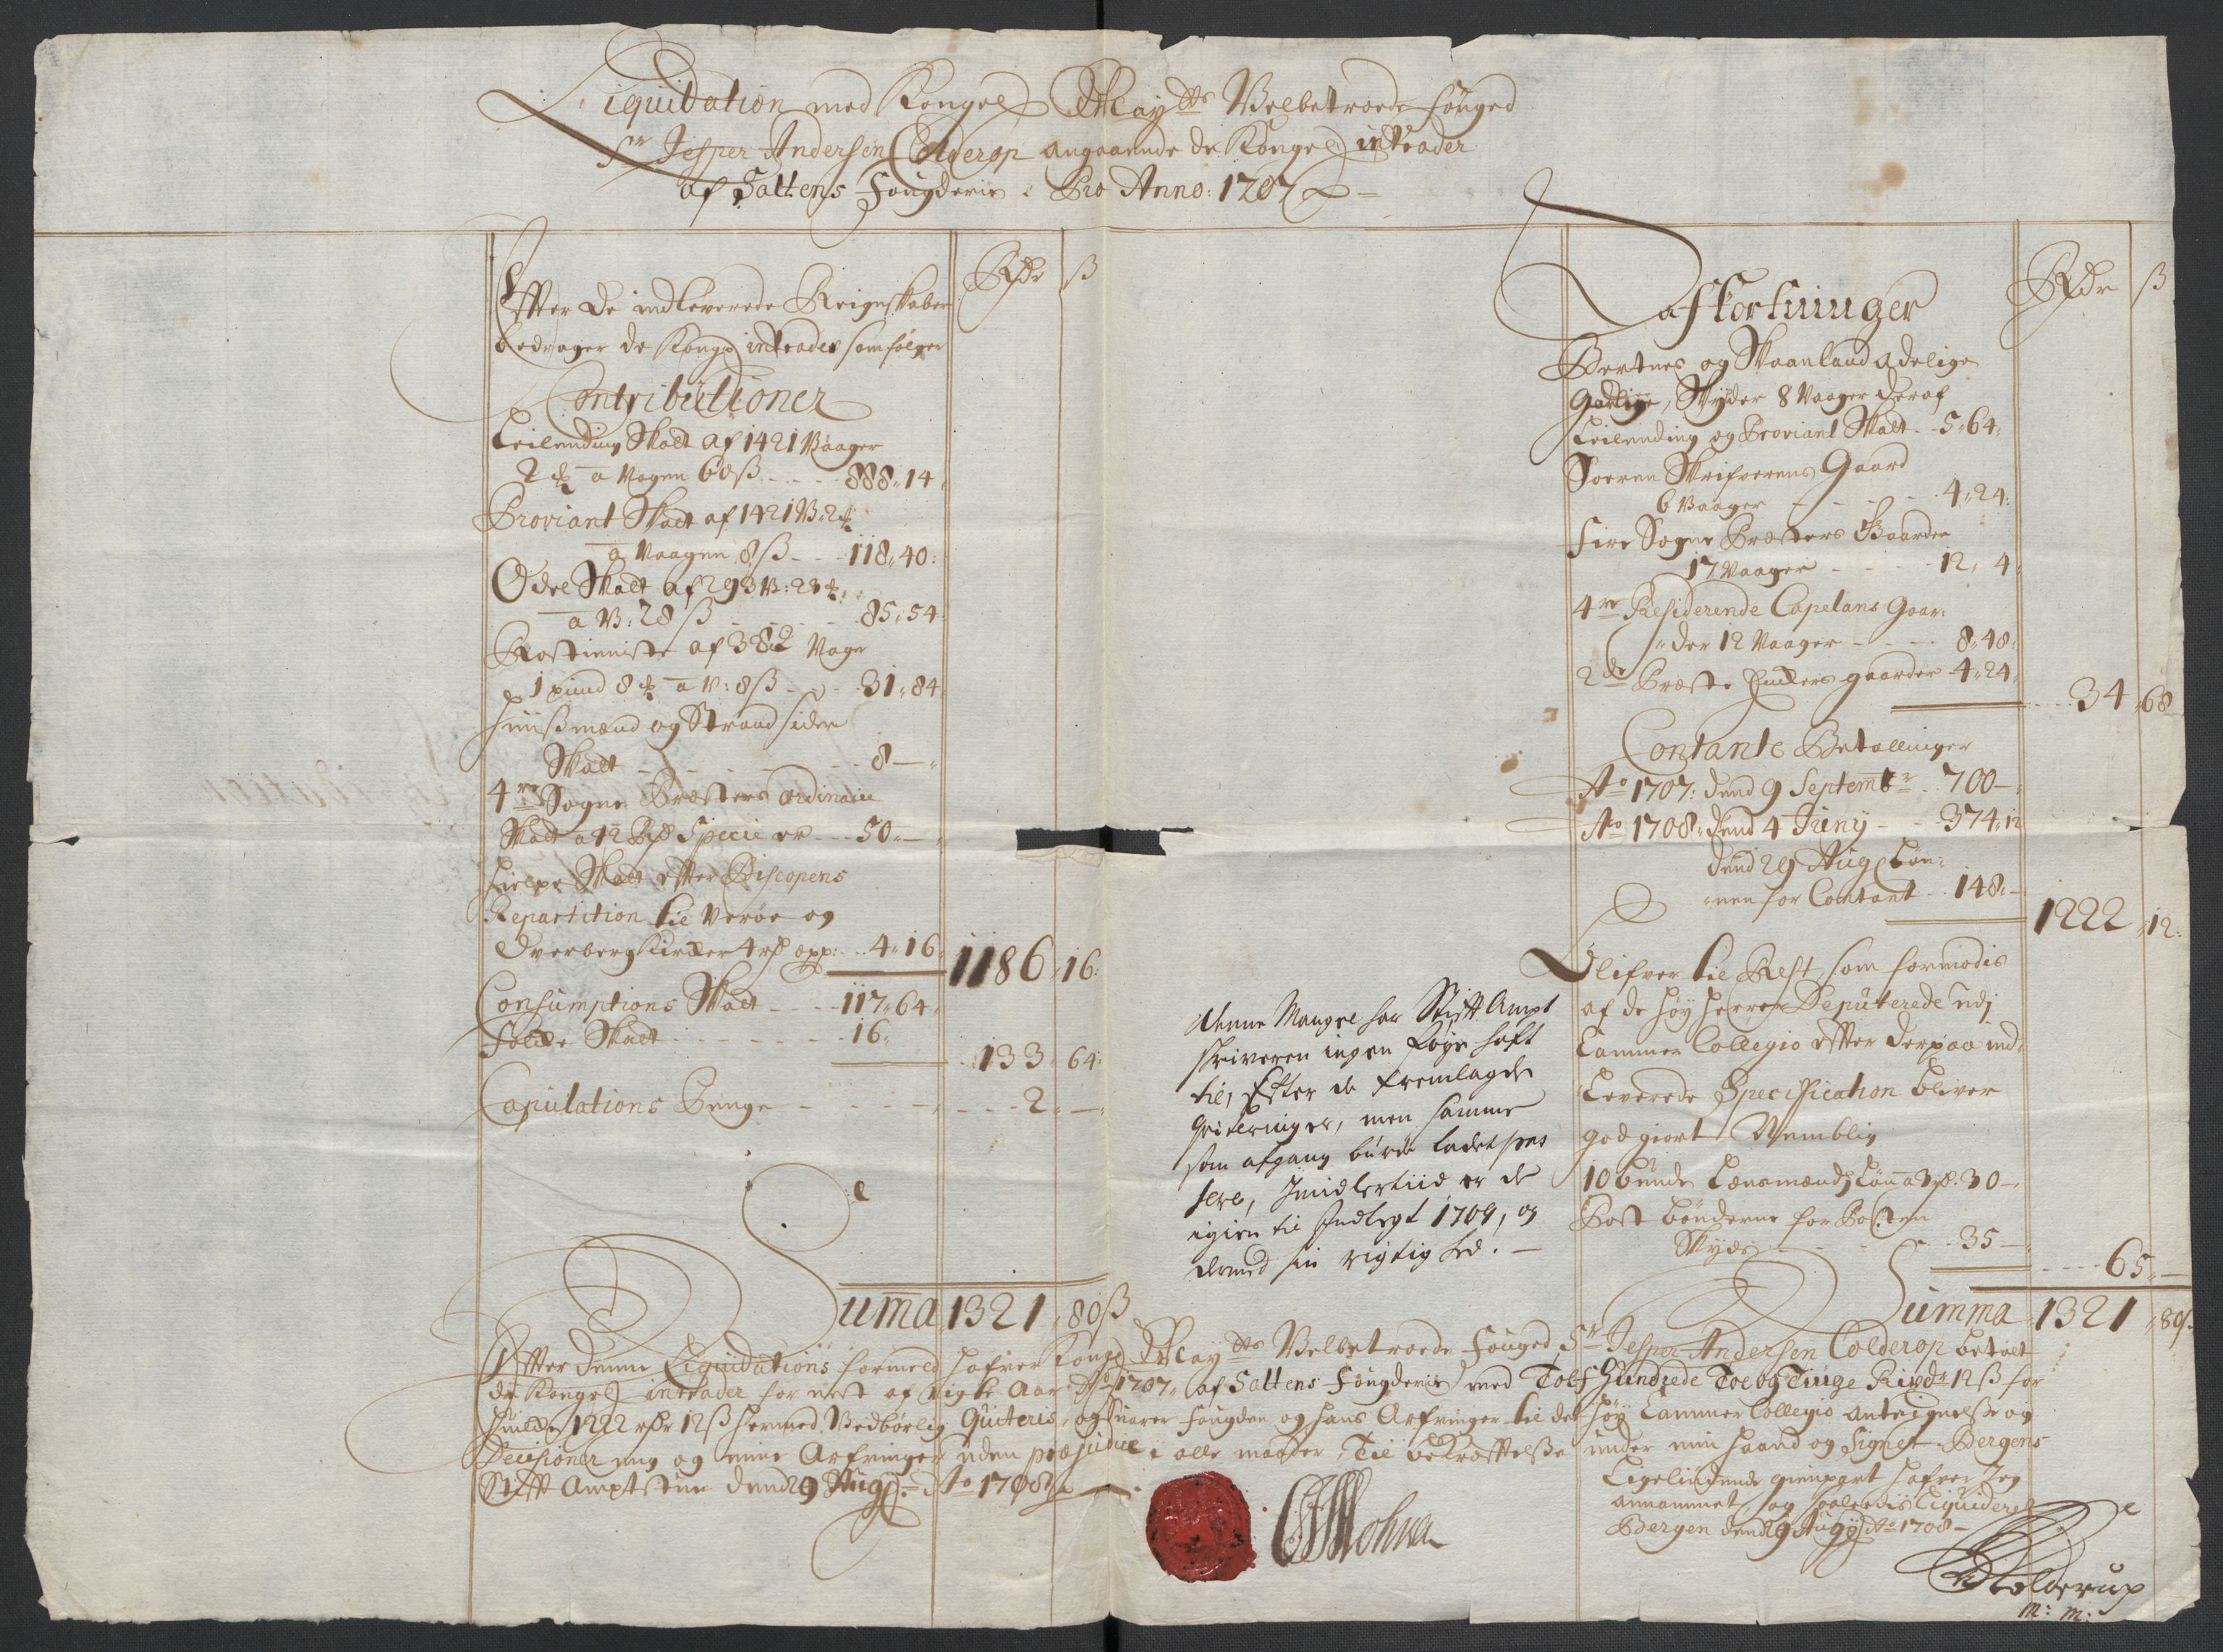 Liquidation med Kongel Maytts Velbetroede fouged
Sr Jesper Andersen Colderop angaaende de Kongel intrader
af Saltens Fougderie Pro Anno: 1707
Rdr ß
Efter de indleverede Reignskaber
bedrager de Kongl intrader som følger
Contributioner
Leilending Skatt af 1421 Vaager
2 a Vogen 60 ß - - - 888 14
Proviant Skatt af 1421 V: 2
a Vaagen 8 ß - - - 118 40
Odel Skatt af 293 V: 23
a V: 28 ß - - - 85 54
Rostieniste af 382 Voger
1 pund 8 a V: 8 ß - - - 31 84
Huußmænd og Strand sidere
Skatt - - - 8 -
4re Sogne Præsters ordinaire
Skatt a 12 Rd Specie er - - - 50 -
Hielpe Skatt efter Biscopens
Repartition til Verøe og
Dverberg Kircker 4 rd opp: - - 4 16
1186 16
Consumptions Skatt - - - 117 64
Folcke Skatt - - - 16
133 64
Copulations Penge - - - 2 -
Suma 1321 80 ß
Rdr ß
afkortninger
Bertnes og Skaanland adelige
gaarder, Skylder 8 Vaager deraf
Leilending og Proviant Skatt - 5 64
Soeren Skrifverens Gaard
6 Vaager - - - 4 24
Fire Sogne Præsters Gaarder
17 Vaager - - - 12 4
4re Residerende Capelans Gaar:
der 12 Vaager - - - 8 48
2de Præste Enckers gaarder 4 24
34 68
Contante Betallinger
Ao 1707: dend 9 Septembr - 700 -
Ao 1708: dend 4 Juny - - 374 12
dend 29 Aug Løn:
nen for Contant - 148 -
1222 12
Blifver til Rest, som formodis
af de høy Herrer Deputerede udj
Cammer Collegio efter derpaa ind:
Leverede Specification bliver
godgiort Nemblig
10 bunde Lensmænds Løn a 3 rd 30 -
Post bønderne for Posten
Skyds - - - 35 -
65 -
Summa 1321 80
denne Mangel har Stift Ampt
skriveren ingen Føye haft
til, Efter de fremlagde
qviteringer, men samme
som afgang burde ladet pas
sere, Imidlertiid er de
igien til Indtegt 1709, og
dermed sin rigtighed. -
Efter denne Liquidations formeld hafver Kongl Maytts Velbetroede Fouged Sr Jesper Andersen Colderop betalt
de Kongel intrader for nest afvigte Aar Ao 1707 af Saltens Fougderie med Tolf Hundrede Toe og Tiuge Rixdr 12 ß for
hvilcke 1222 rdr 12 ß hermed Vedbørlig Quiteris, og svarer Fougden og hans Arfvinger til det høy Cammer Collegio antegnelse og
Decisioner mig og mine Arfvinger uden præjudice i alle maader, Til bekræftelse under min haand og Signet Bergens
Stift Amptstue dend 29 Aug: Ao 1708
Ligelydende gienpart hafver Jeg
annammet og saaledis Liquideret
Bergen dend 29 Aug Ao 1708 -
Colderup
m: m: